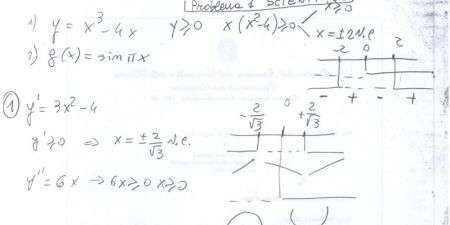 Problema 1 SCIENTI
1) y = x³ - 4x   y ≥ 0   x(x²-4) ≥ 0   x ≥ 0
x = ±2 V.E
-2 0 2
2) g(x) = sin πx
- + - +
① y' = 3x² - 4
-2/√3 0 +2/√3
y' ≥ 0 ⇒ x = ±2/√3 V.E.
y'' = 6x → 6x ≥ 0 x ≥ 0